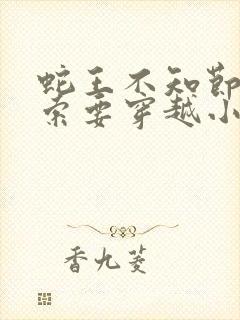 蛇王不知节
索要穿越小
香九菱